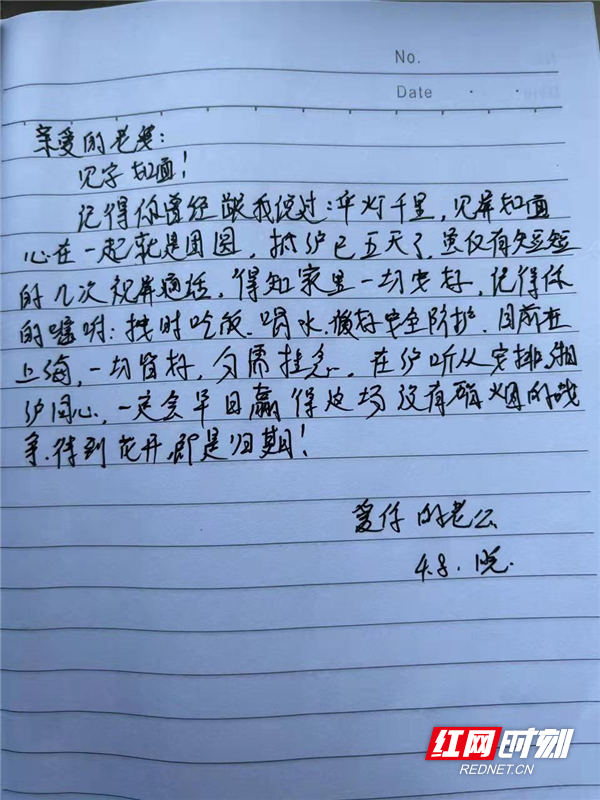 No.
Date
亲爱的老婆：
见字如面！
记得你曾经跟我说过：平灯千里，见屏如面
心在一起就是团圆，抵沪已五天了，虽仅有短短
的几次视屏通话，得知家里一切安好，记得你
的嘱咐：按时吃饭、喝水，做好安全防护。目前在
上海，一切皆好，勿需挂念。在沪听从安排，湘
沪同心，一定会早日赢得这场没有硝烟的战
争。待到花开，即是归期！
爱你的老公
4.8.晚.
红网时刻
REDNET.CN